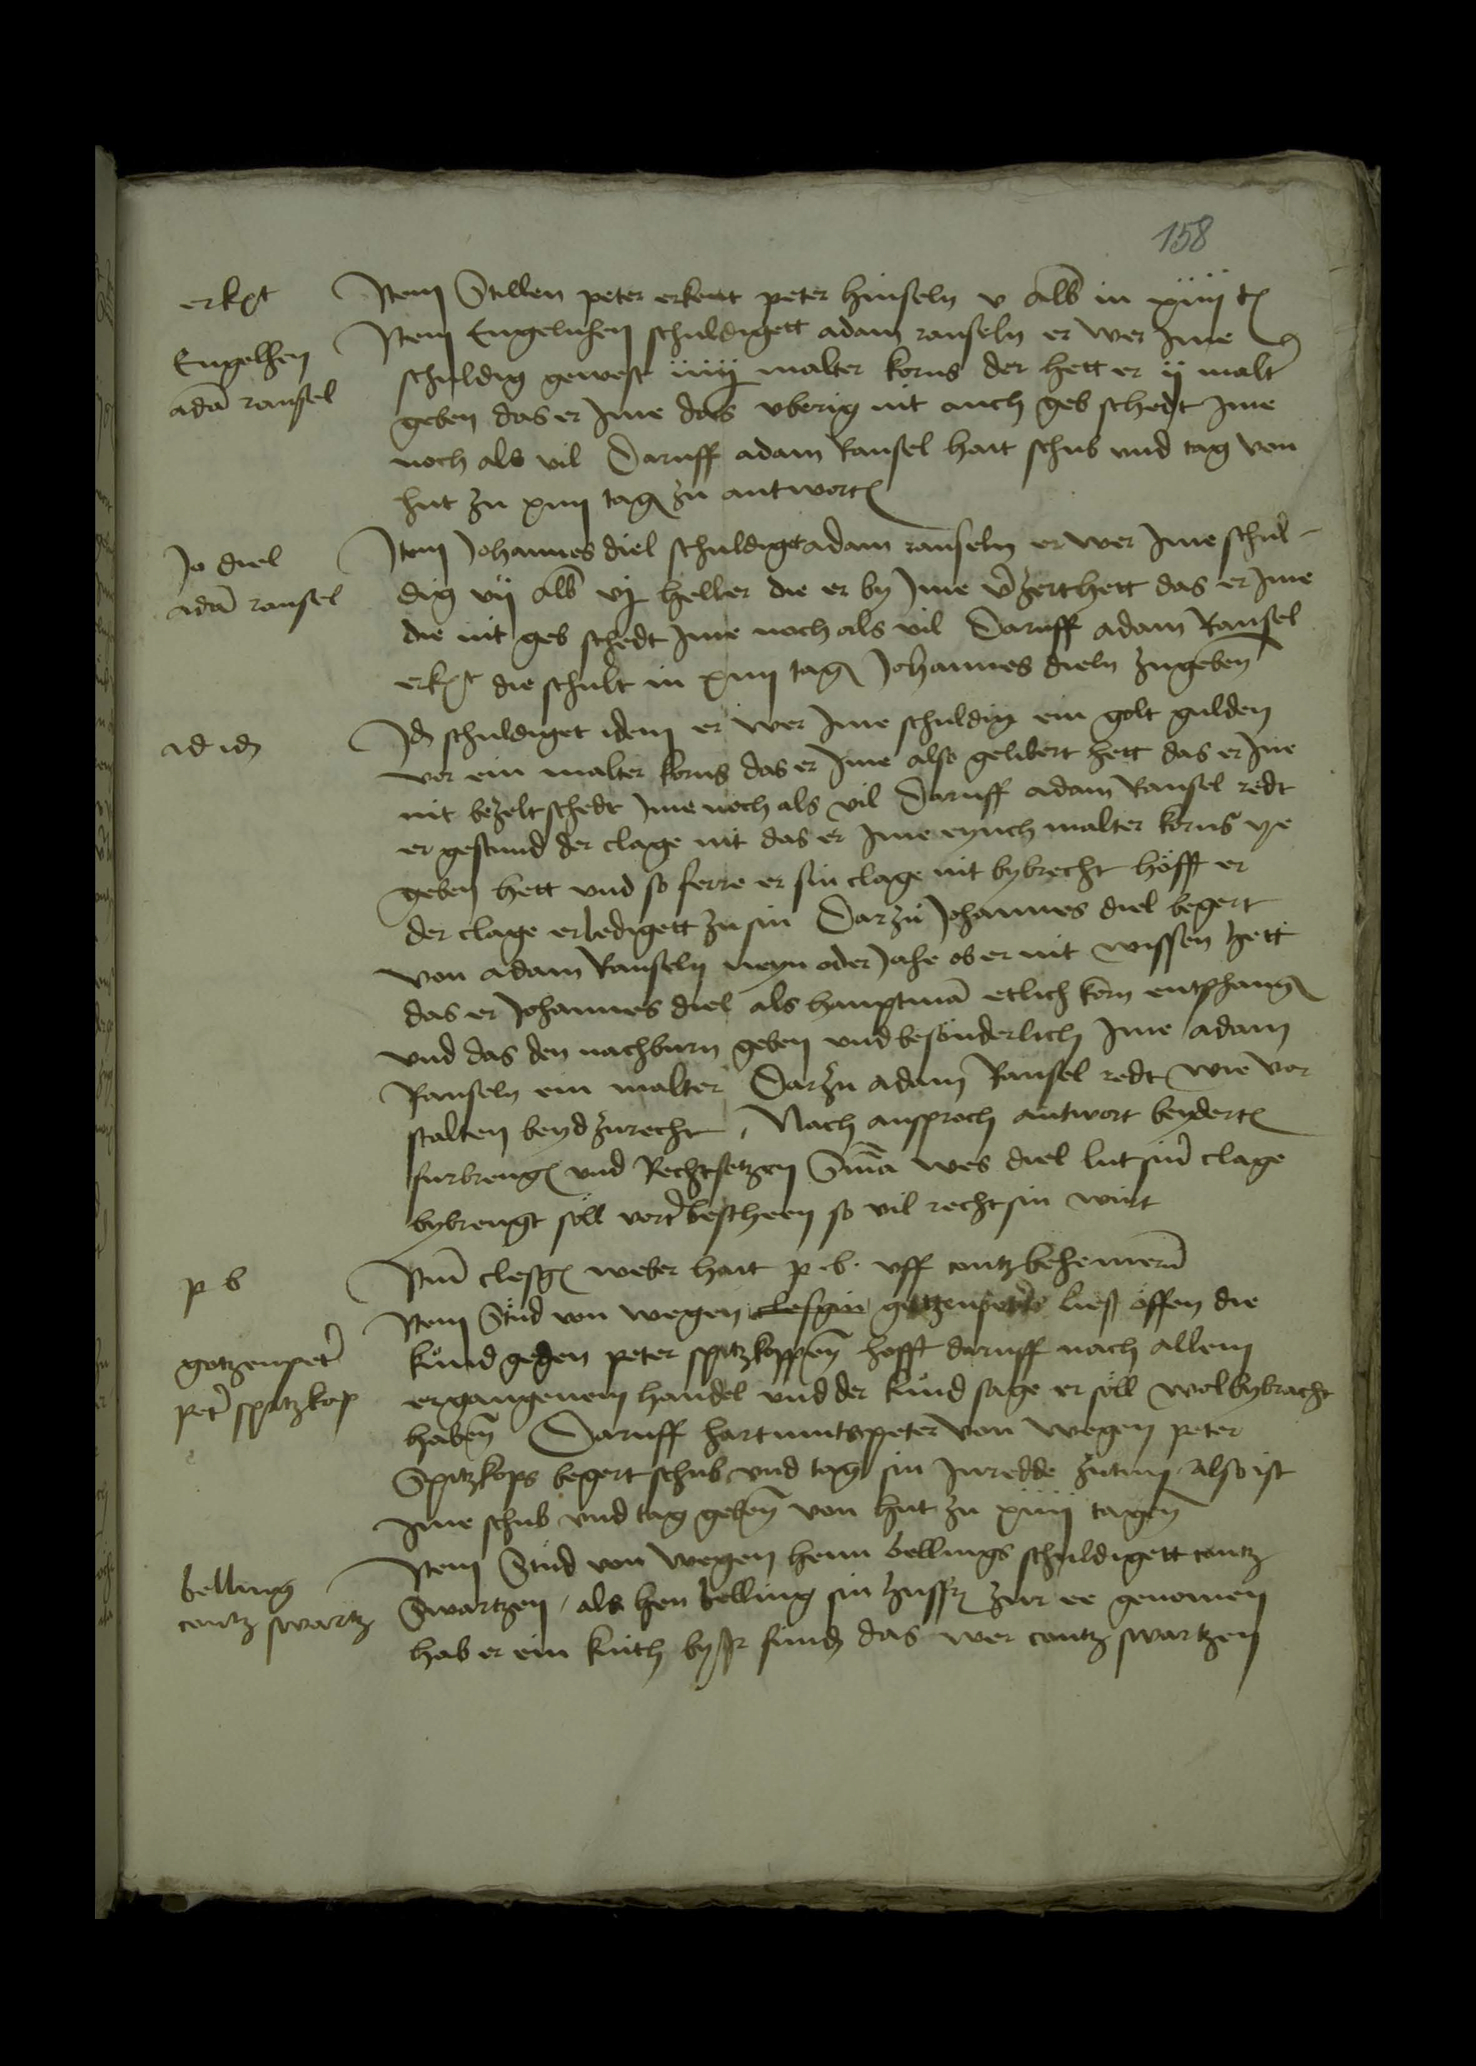 158
erkēt
Item Stillen peter erkent peter hinseln v alb in xiiii t
Engelhen
adā ransel
Item Engelnhen schuldigett adam ranseln er wer Ime
schuldig gewest iiiij malter korns der hett er ij malt
geben das er Ime das vberig nit auch geb schedt Ime
noch als vil Daruff adam Ransel hait schub vnd tag von
hut zu xiiii tag zu antwort
Jo diel
adā ransel
Item Johannes diel schuldiget adam ranseln er wer Ime schul-
dig vij alb vj heller die er by Ime v'zert hett das er Ime
die nit geb schedt Ime noch als vil Daruff adam Ransel
erkēt die schult in xiiii tag Johannes dieln zugeben
id id
Id schuldiget idem er wer Ime schuldig ein golt gulden
vor ein malter korns das er Ime also gelibert hett das er Ine
nit bezelt schedt Ime noch als vil Daruff adam Ransel redt
er gestund der clage nit das er Ime eynich malter korns ye
geben hett vnd so ferre er sin clage nit bybrecht hofft er
der clage erledigett zu sin Darzu Johannes diel begert
von adam Ranseln neyn oder Jahe ob er nit wissen hett
das er Johannes diel als hauptmā etlich korn entphang
vnd das den nachburn geben vnd besonderlich Ime adam
Ranseln ein malter Darzu adam Ransel redt wie vor
stalten beyd zurecht, Nach ansproch antwort beydert
furbreng vnd Rechtsetzen S'nīa wes diel lut sin' clage
bybrengt soll vort' bescheen so vil recht sin wirt
p b
Itm clesg weber hait p. b. vff contz behemern
gotzenpet'
pet' spitzkop
Item Stud von wegen gotzenpeters ließ offen die
kund gegen peter spitzkoppen hofft daruff nach allem
ergangenem handel vnd der kund sage er soll wol bybracht
haben Daruff hartmutspeter von wegen peter
Spitzkops begert schub vnd tag sin Inredde zutun also ist
Ime schub vnd tag geben von hut zu xiiii tagen
belling
contz swartz
Item Stud von wegen henn bellings schuldigett contz
Swartzen, als hen belling sin husfr zur ee genomen
hab er ein kuch by Ir fund das wer contz swartzen